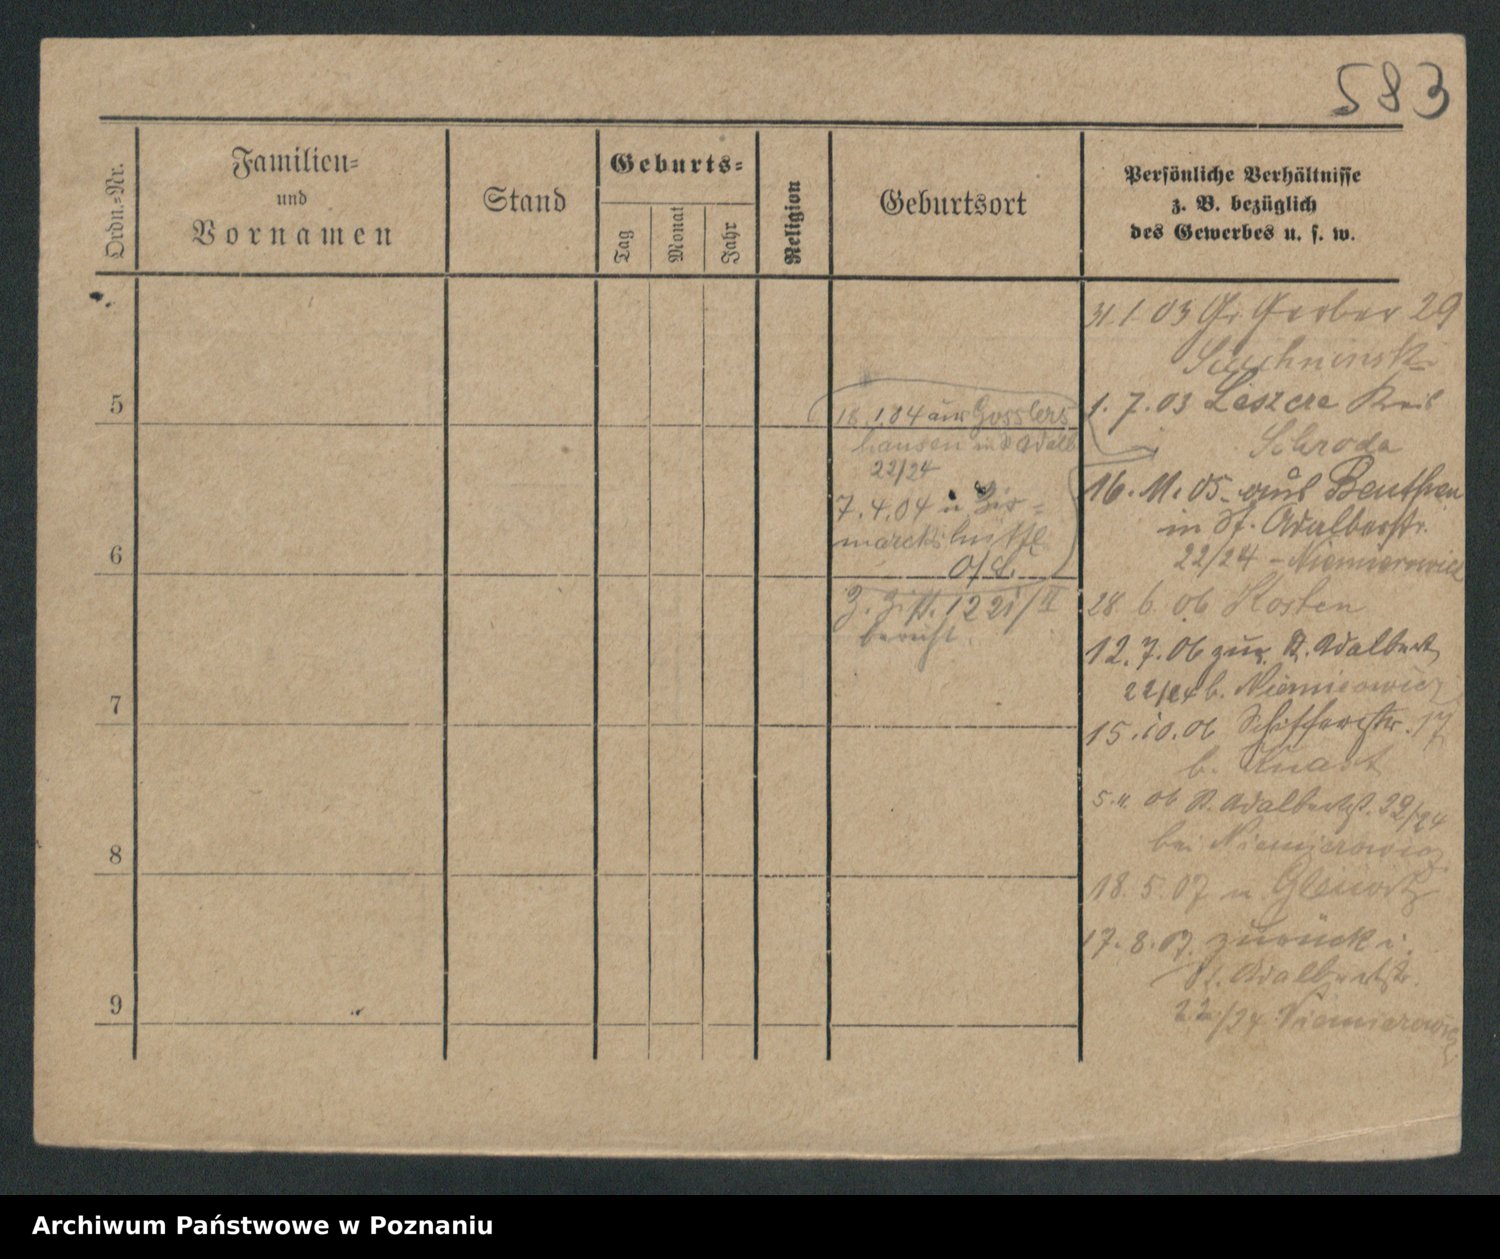 583
Ordn.-Nr.
Familien-
und
Vornamen
Stand
Geburts-
Tag
Monat
Jahr
Religion
Geburtsort
Persönliche Verhältnisse
z. B. bezüglich
des Gewerbes u. s. w.
5
6
7
8
9
18.1.04 aus Gosslers
hausen in St Adalb
22/24
7.4.04 n. Bis-
marckshütte
O/S.
122i/II
31.1.03 Gr. Gerber 29
1.7.03 Kreis
Schroda
16.11.05 aus Beuthen
in St. Adalbertstr.
22/24 - Niemierowicz
28.6.06 Kosten
12.7.06 zur. St. Adalbert
22/24 b. Niemierowicz
15.10.06 Schifferstr. 17
b. Knast
5.11.06 St. Adalbertst. 22/24
bei Niemierowicz
18.5.07 n Gleiwitz
17.8.07 zurück i.
St. Adalbertstr.
22/24 Niemierowicz
Archiwum Państwowe w Poznaniu